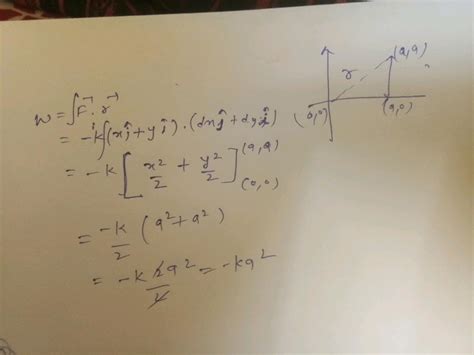 w = ∫F⃗ . r⃗
= -k∫(xî + yĵ) . (dxî + dyĵ)
= -k [x²/2 + y²/2] (a, a) (0, 0)
= -k/2 (a² + a²)
= -k 2a²/2 = -ka²
(a, a)
r
(0,0)
(a,0)